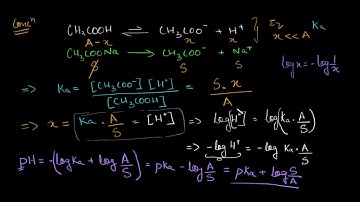 Concⁿ
CH₃COOH ⇌ CH₃COO⁻ + H⁺ } Eq
A-x x x x<<A Ka
CH₃COONa → CH₃COO⁻ + Na⁺
S S S
log x = -log 1/x
⇒ Ka = [CH₃COO⁻] [H⁺] / [CH₃COOH] = S.x / A
⇒ x = Ka . A/S = [H⁺] ⇒ log[H⁺] = log(Ka. A/S)
⇒ -log H⁺ = -log Ka. A/S
pH = -(log Ka + log A/S) = pKa - log A/S = pKa + log S/A